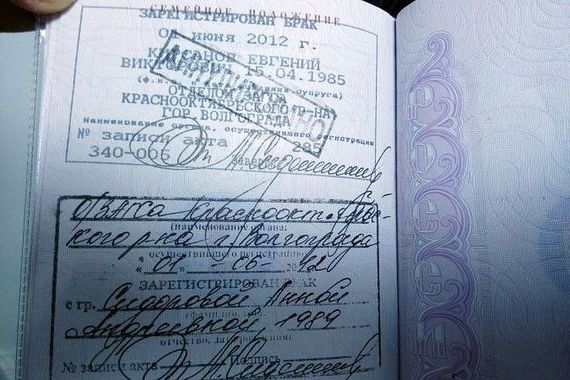 СЕМЕЙНОЕ ПОЛОЖЕНИЕ
ЗАРЕГИСТРИРОВАН БРАК
ИЮНЯ 2012 г.
ЕВГЕНИЙ
15.04.1985
ОТДЕЛОМ
КРАСНООКТЯБРЬСКОГО Р-НА
ГОР. ВОЛГОГРАДА
Наименование органа, осуществившего регистрацию
№ записи акта 285
340-006
О/ЗАГСа Краснооктябрьс-
кого р-на г. Волгограда
(наименование органа,
осуществившего регистрацию)
« 01 » 06 2012
ЗАРЕГИСТРИРОВАН БРАК
с гр. Сидоровой Анной
Андреевной 1989
отчество, дата рождения)
№ записи акта Подпись